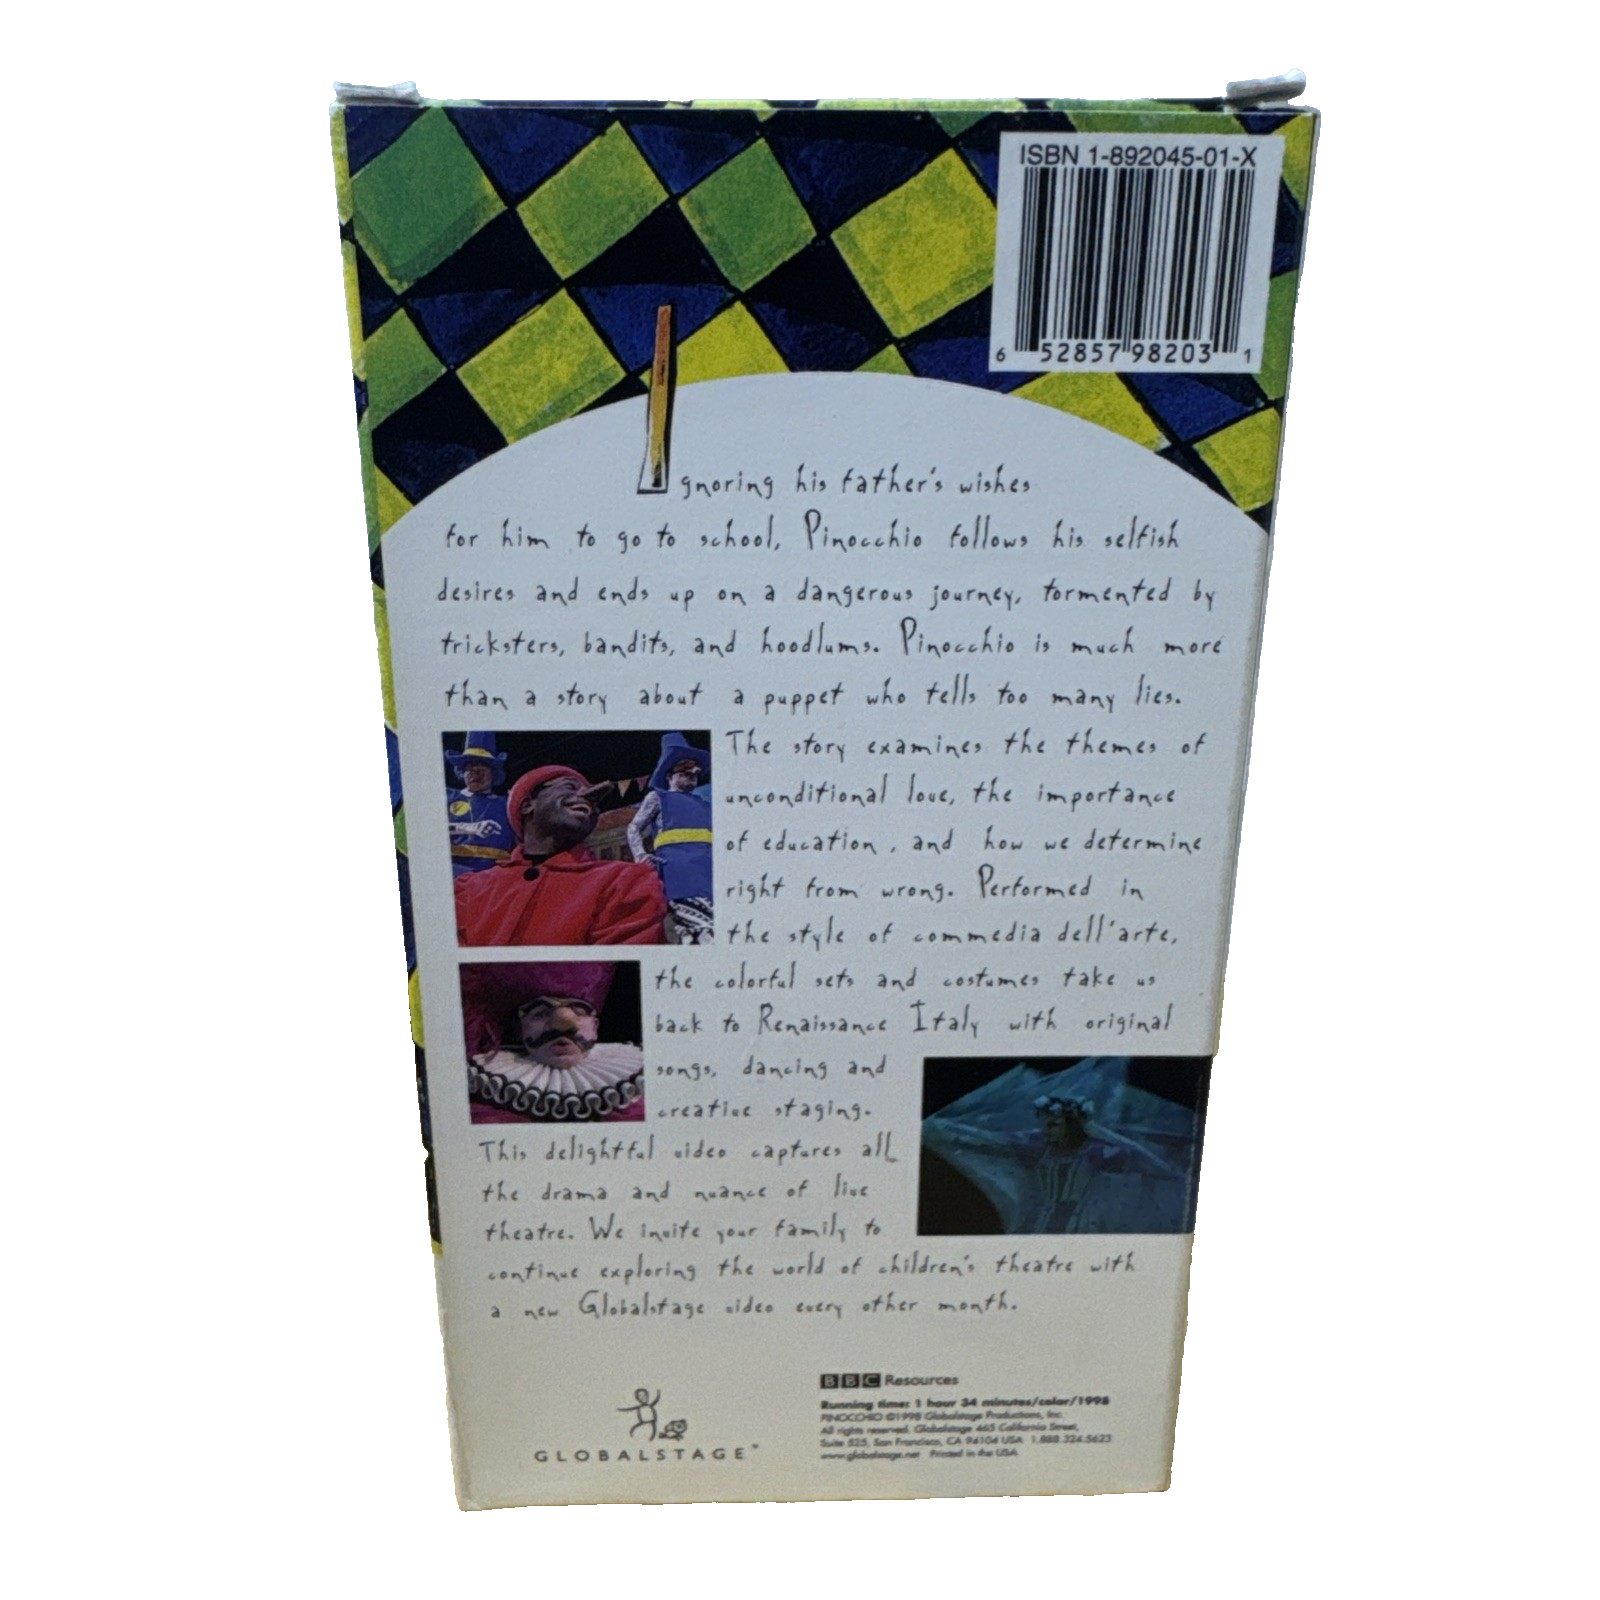 ISBN 1-892045-01-X
6 52857 98203 1
Ignoring his father's wishes
for him to go to school, Pinocchio follows his selfish
desires and ends up on a dangerous journey, tormented by
tricksters, bandits, and hoodlums. Pinocchio is much more
than a story about a puppet who tells too many lies.
The story examines the themes of
unconditional love, the importance
of education, and how we determine
right from wrong. Performed in
the style of commedia dell'arte,
the colorful sets and costumes take us
back to Renaissance Italy with original
songs, dancing and
creative staging.
This delightful video captures all
the drama and nuance of live
theatre. We invite your family to
continue exploring the world of children's theatre with
a new Globalstage video every other month.
BBC Resources
Running time: 1 hour 34 minutes/color/1998
PINOCCHIO ©1998 Globalstage Productions, Inc.
All rights reserved. Globalstage 465 California Street,
Suite 525, San Francisco, CA 94104 USA 1.888.324.5623
www.globalstage.net Printed in the USA
GLOBALSTAGE